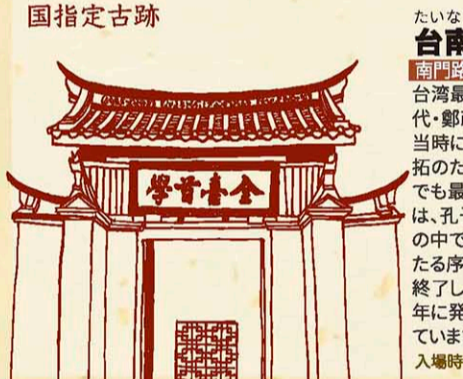 国指定古跡
全臺首學
たいな
台南
南門路
台湾最
代・鄭
当時に
拓のた
でも最
は、孔子
の中で
たる序
終了し
年に発
ていま
入場時